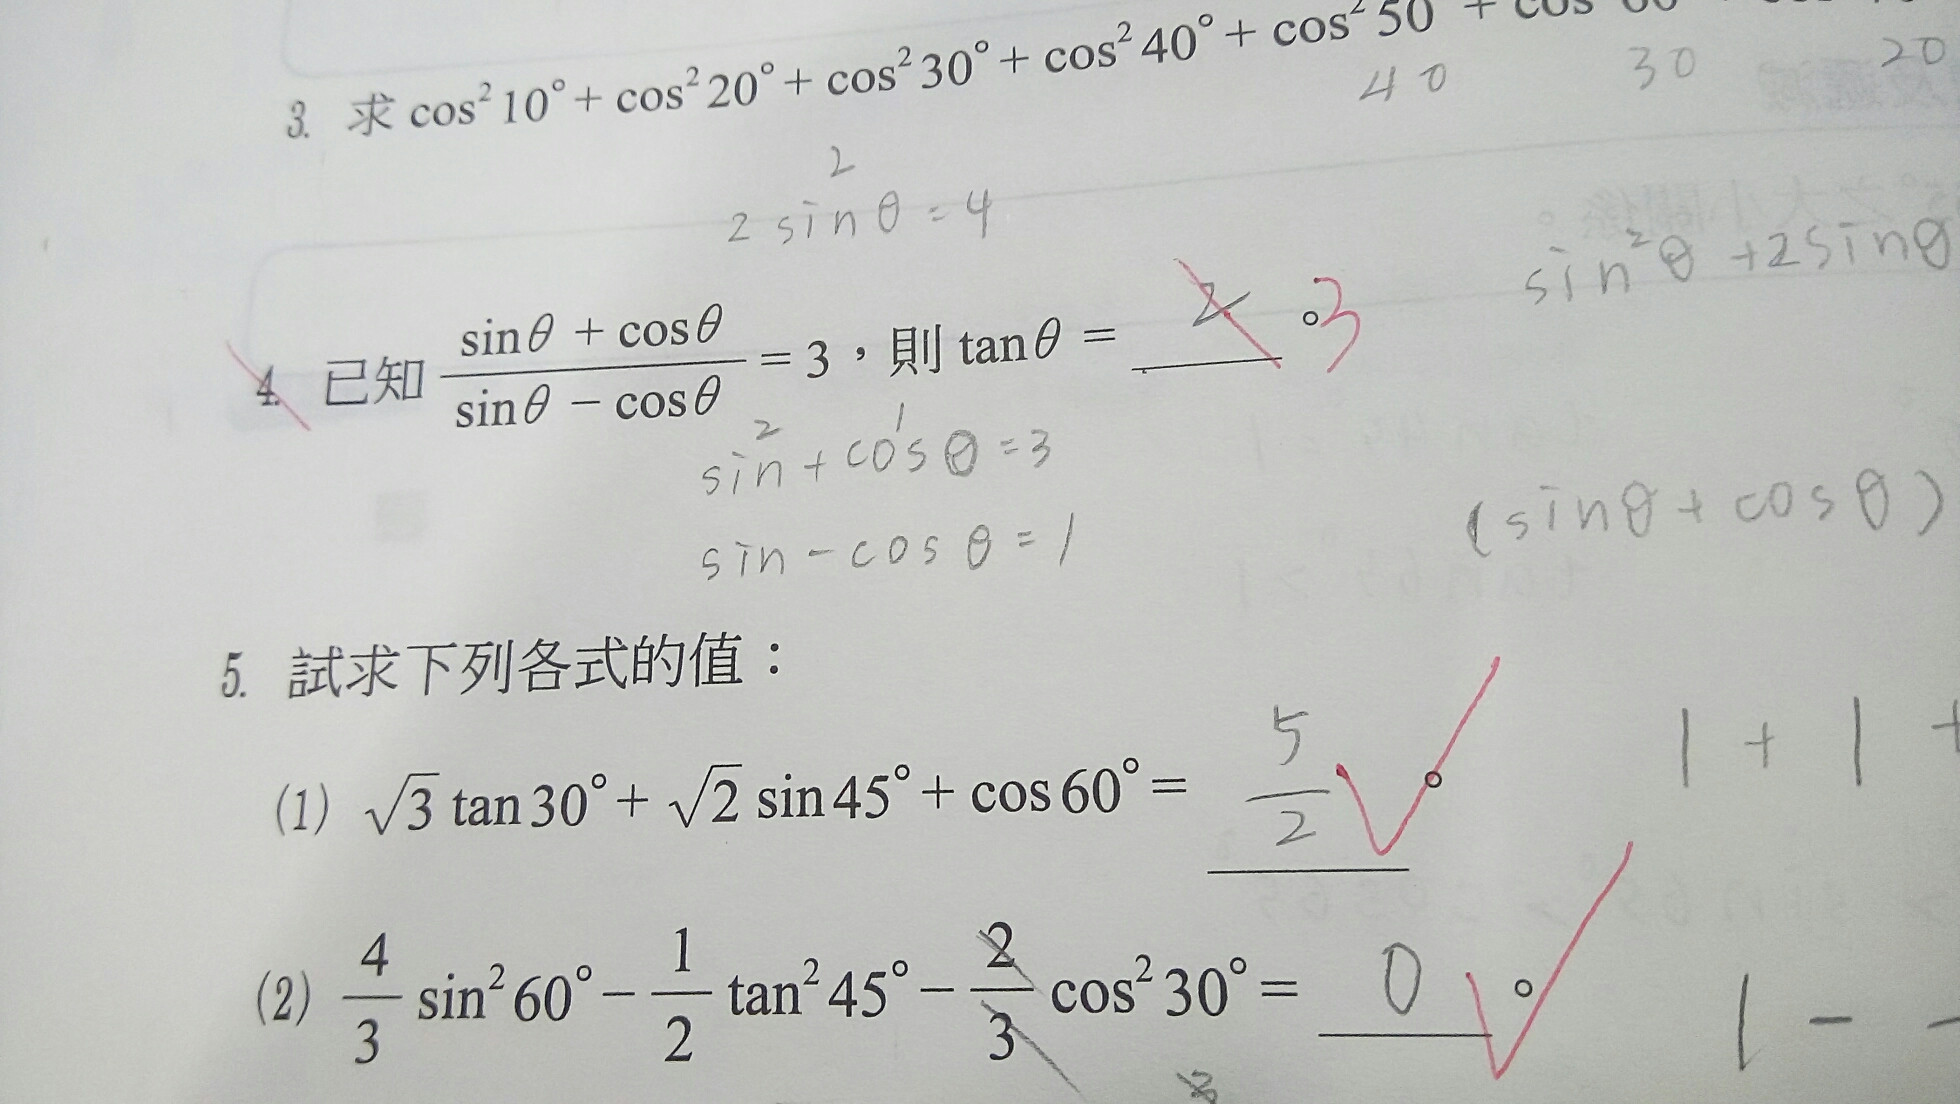 3. 求 cos²10° + cos²20° + cos²30° + cos²40° + cos²50 + cos
40 30 20
2
2 sinθ = 4
sin²θ + 2sinθ
4. 已知 (sinθ + cosθ)/(sinθ − cosθ) = 3，則 tanθ = 2 。 3
sin + cosθ = 3
2 1
sin - cosθ = 1
(sinθ + cosθ)
5. 試求下列各式的值：
(1) √3 tan30° + √2 sin45° + cos60° = 5/2 。
1 + 1 +
(2) 4/3 sin²60° − 1/2 tan²45° − 2/3 cos²30° = 0 。
1 - -